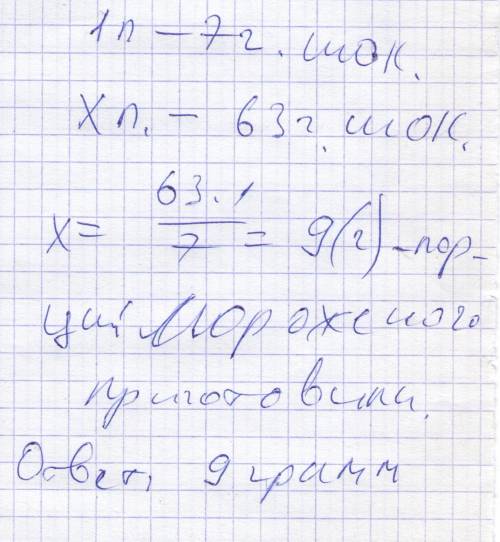 1п – 7г. шок.
Xп. – 63г. шок.
x = 63.1 / 7 = 9(г) – пор-
ций мороженого
приготовили.
Ответ, 9 грамм